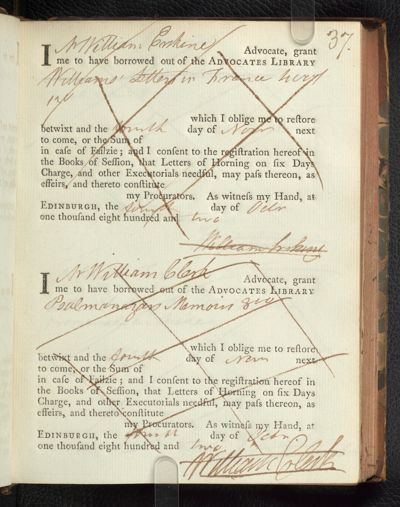 37.
I Mr William Erskine Advocate, grant
me to have borrowed out of the ADVOCATES LIBRARY
Williams' Letters in France
which I oblige me to reſtore
betwixt and the fourth day of Novr next
to come, or the Sum of
in caſe of Failzie; and I conſent to the regiſtration hereof in
the Books of Seſſion, that Letters of Horning on ſix Days
Charge, and other Executorials needful, may paſs thereon, as
effeirs, and thereto conſtitute
my Procurators. As witneſs my Hand, at
EDINBURGH, the fourth day of Octr
one thouſand eight hundred and two
William Erskine
I Mr William Clerk Advocate, grant
me to have borrowed out of the ADVOCATES LIBRARY
Psalmanazars Memoirs
which I oblige me to reſtore
betwixt and the fourth day of Novr next
to come, or the Sum of
in caſe of Failzie; and I conſent to the regiſtration hereof in
the Books of Seſſion, that Letters of Horning on ſix Days
Charge, and other Executorials needful, may paſs thereon, as
effeirs, and thereto conſtitute
my Procurators. As witneſs my Hand, at
EDINBURGH, the fourth day of Octr
one thouſand eight hundred and two
William Clerk